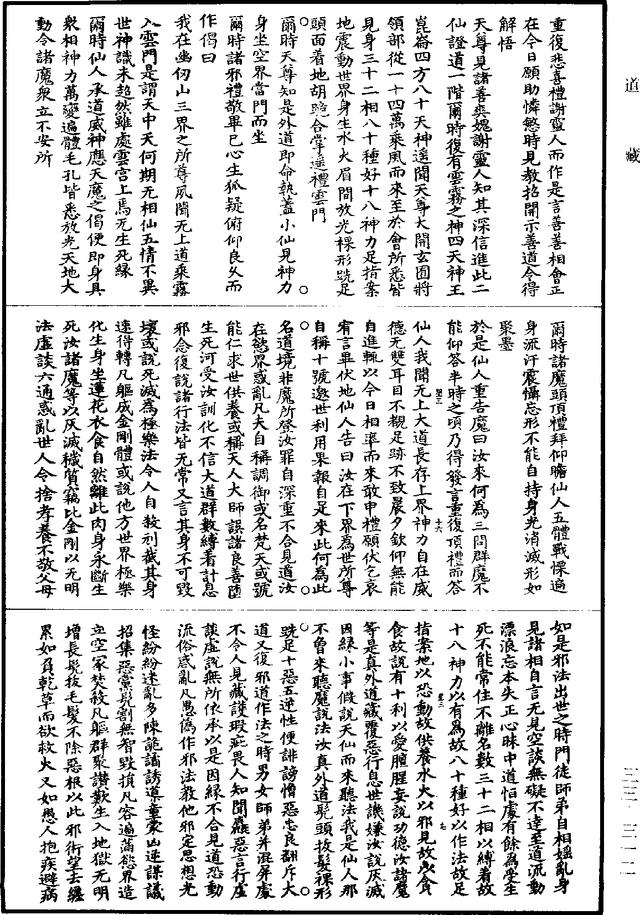 道藏
重復悲喜禮謝靈人而作是言善善相會正
在今日願助憐愍時見教招開示善道令得
解悟
天尊見諸善爽媿謝靈人知其深信進此二
仙證道一階爾時復有雲霧之神四天神王
崑崙四方八十天神遥聞天尊大開玄圃將
領部從一十四萬乘風而來至於會所悉皆
見身三十二相八十種好十八神力足指案
地震動世界身生水火眉間放光裸形跣足
頭面着地胡跪合掌遥禮雲門
爾時天尊知是外道即命執蓋小仙見神力
身坐空界當門而坐
爾時諸邪禮敬畢已心生狐疑俯仰良久而
作偈曰
我在幽仞山三界之所尊夙聞无上道乘霧
入雲門是謂天中天何期无相仙五情不異
世神識未超然雖處雲宮上焉无生死緣
爾時仙人承道威神應天魔之偈便即身具
衆相神力萬變遍體毛孔皆悉放光天地大
動令諸魔衆立不安所
爾時諸魔頭頂禮拜仰瞻仙人五體戰慄遍
身流汗震懾忘形不能自持身光消滅形如
聚墨
於是仙人重告魔曰汝來何爲三問群魔不
能仰答半時之頃乃得發言重復頂禮而答
仙人我聞无上大道長存上界神力自在威
德无雙耳目不覩足跡不致晨夕欽仰無能
自進輒以今日相率而來敢申禮願伏乞哀
宥言畢伏地仙人告曰汝在下界爲世所尊
自稱十號邀世利用果報自足來此何爲此
名道境非魔所祭汝罪自深重不合見道汝
在慾界惑亂凡夫自稱調御或名梵天或號
能仁求世供養或稱天人大師誤諸良善墮
生死河受汝訓化不信大道群數縛着計息
邪念復說諸行法皆无常又言其身不可毀
壞或說死滅爲極樂法令人自殺刑截其身
速得轉凡軀成金剛體或說他方世界極樂
化生身坐蓮花衣食自然離此肉身永斷生
死汝諸魔等以灰滅穢質竊比金剛以无明
法虛談六通惑亂世人令捨孝養不敬父母
如是邪法出世之時門徒師弟自相婬亂身
見諸相自言无見空談無礙不達至道流動
漂浪忘本失正心昧中道怕處有餘爲受生
死不能常住不離名數三十二相以縛着故
十八神力以有爲故八十種好以作法故足
指案地以恐動故供養水火以邪見故㐫食
食故說有十利以愛膻腥妄說功德汝諸魔
等是真外道藏覆惡行息世譏嫌汝說灰滅
因緣小事假說天仙而來聽法我是仙人那
不曾來聽魔說法汝真外道髠頭拔髮裸形
跣足十惡五逆性便誹謗憎惡忠良翻斥大
道又復邪道作法之時男女師弟并混屏處
不令人見藏護瑕疵畏人知聞麤惡言行虛
談虛說無所依承以是因緣不合見道恐動
流俗惑亂凡愚僞作邪法教他邪定思想光
怪紛紛迷亂多陳詭譎誘導童蒙凶逆謀議
招集惡黨髠割無智毀損凡容遍滿慾界造
立空冢焚殺凡軀群聚讚歎生入地獄无明
增長髠拔毛髮不除惡根以此邪術望去纏
累如負乾草而欲救火又如愚人抱疾避病